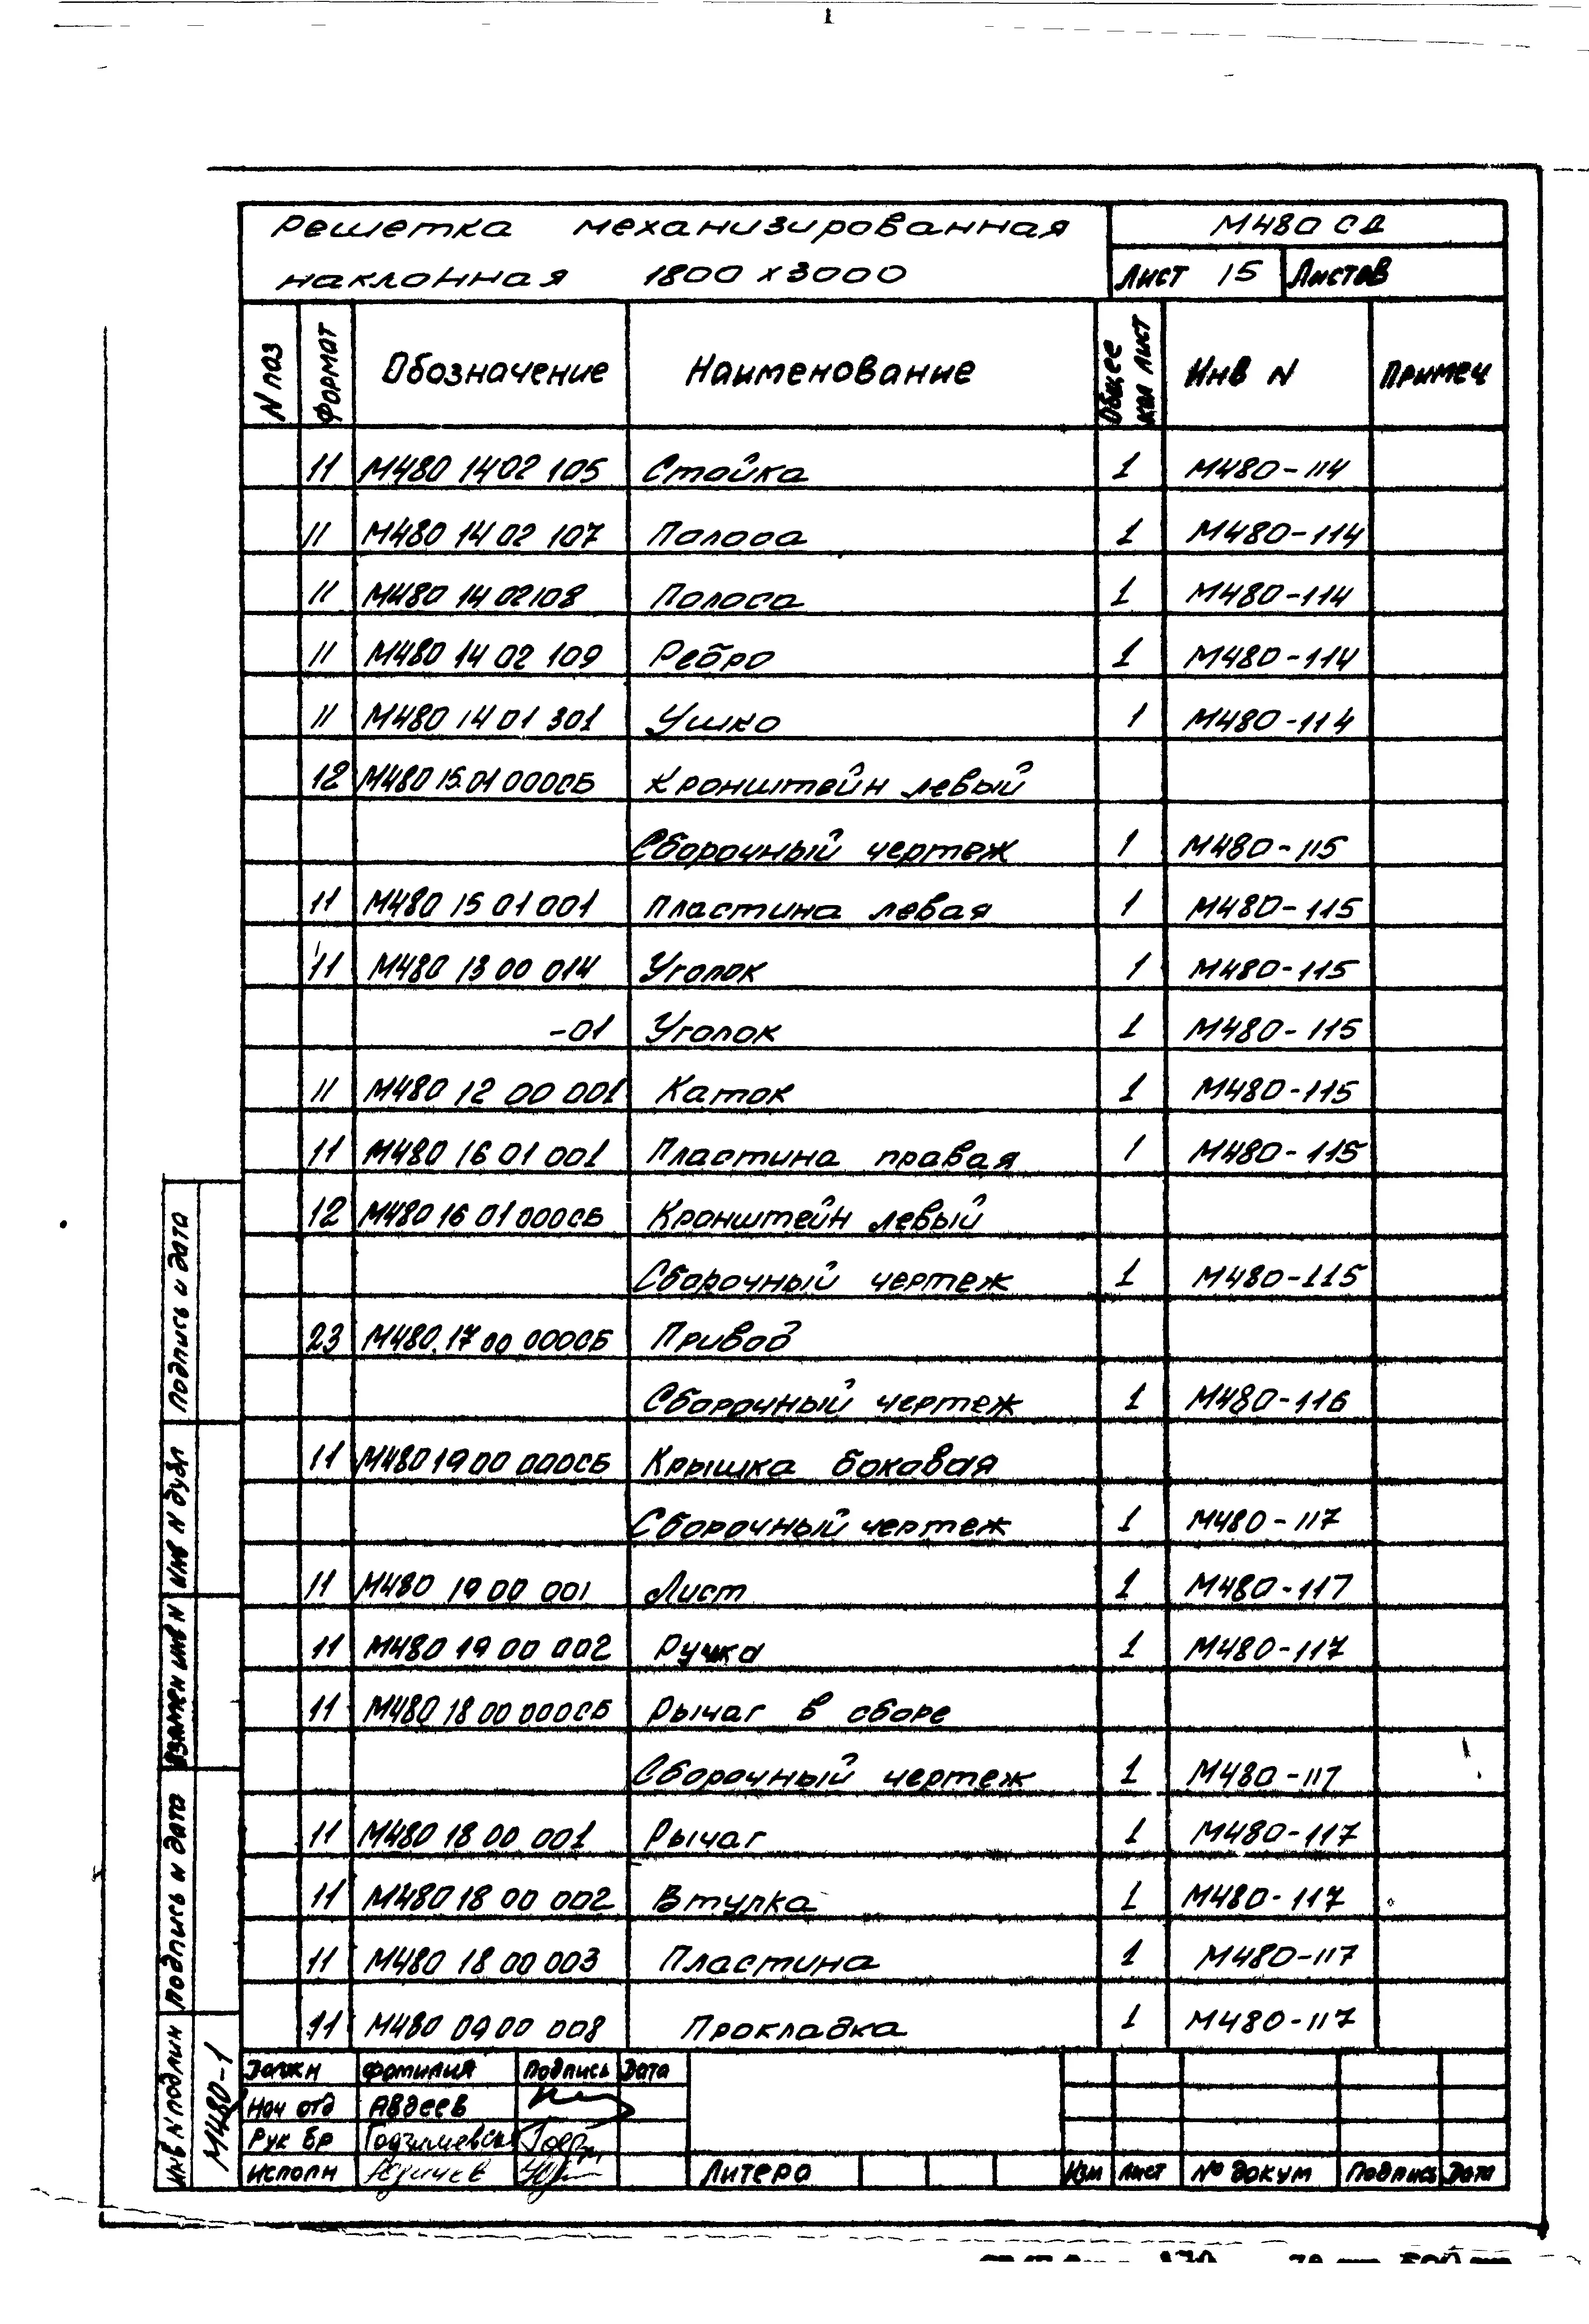 1
Решетка механизированная
наклонная 1800 х 3000
М480 СД
Лист 15 Листов
N паз Формат Обозначение Наименование Общее кол лист Инв N Примеч
11 М480 14 02 105 Стойка 1 М480-114
11 М480 14 02 107 Полоса 1 М480-114
11 М480 14 02 108 Полоса 1 М480-114
11 М480 14 02 109 Ребро 1 М480-114
11 М480 14 01 301 Ушко 1 М480-114
12 М480 15.01 000СБ Кронштейн левый
Сборочный чертеж 1 М480-115
11 М480 15 01 001 Пластина левая 1 М480-115
11 М480 13 00 014 Уголок 1 М480-115
-01 Уголок 1 М480-115
11 М480 12 00 001 Каток 1 М480-115
11 М480 16 01 001 Пластина правая 1 М480-115
12 М480 16 01 000СБ Кронштейн левый
Сборочный чертеж 1 М480-115
23 М480.17 00 000СБ Привод
Сборочный чертеж 1 М480-116
11 М480 19 00 000СБ Крышка боковая
Сборочный чертеж 1 М480-117
11 М480 19 00 001 Лист 1 М480-117
11 М480 19 00 002 Ручка 1 М480-117
11 М480 18 00 000СБ Рычаг в сборе
Сборочный чертеж 1 М480-117
11 М480 18 00 001 Рычаг 1 М480-117
11 М480 18 00 002 Втулка 1 М480-117
11 М480 18 00 003 Пластина 1 М480-117
11 М480 09 00 008 Прокладка 1 М480-117
Должн Фамилия Подпись Дата
Нач отд Авдеев
Рук бр
Исполн Юричев
Литера
Изм Лист № докум Подпись Дата
Подпись и дата
Инв N дубл
Взамен инв N
Подпись и дата
Инв N подлин
М480-1